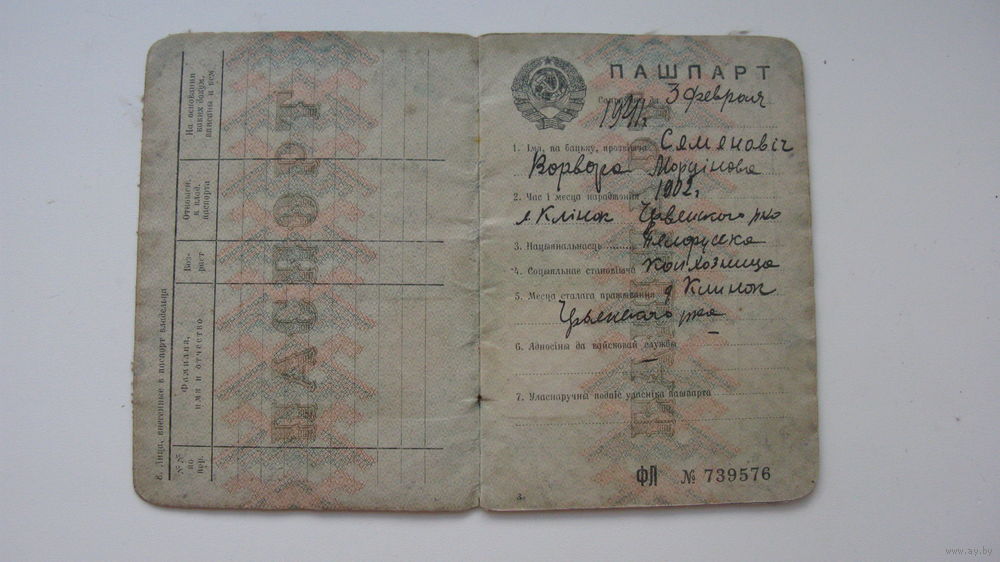 8. Лица, внесенные в паспорт владельца
№№ по пор.
Фамилия, имя и отчество
Воз-раст
Отношен. к влад. паспорта
На основании каких докум. внесены и кем
ПАСПОРТ
ПАШПАРТ
3 февраля
1941 г.
1. Імя, па бацьку, прозвішча Семяновіч
Ворвора Мордінова
2. Час і месца нараджэння 1902 г
д Клінок Чрвенского р-на
3. Нацыянальнасць Белоруска
4. Соцыяльнае становішча Колхозница
5. Месца сталага пражывання д Клинок
6. Адносіны да вайсковай службы —
7. Уласнаручны подпіс уласніка пашпарта
ФЛ № 739576
3
www.ay.by